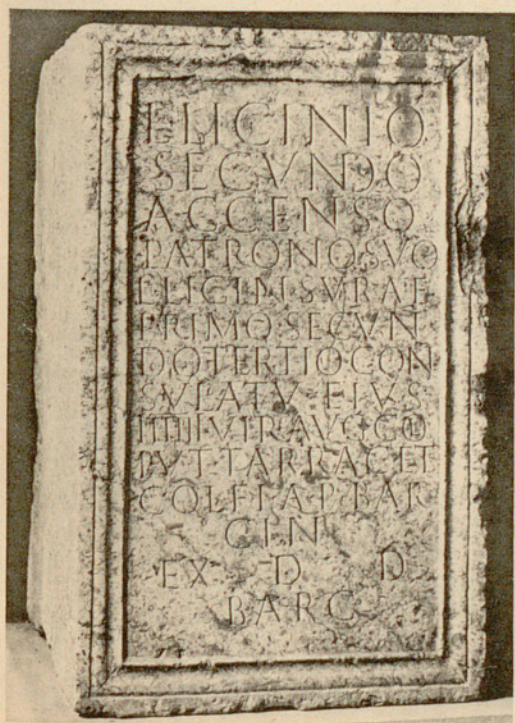 L LICINIO
SECVNDO
ACCENSO
PATRONO·SVO
L LICINI·SVRAE
PRIMO·SECVN
DO·TERTIO·CON
SVLATV·EIVS
IIIIII VIR AVG COL
IVL V T TARRAC ET
COL·F·I·A·P·BAR
CIN
EX D D
BARC